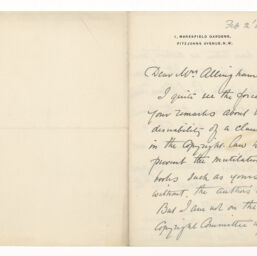 Feb 2
1, MARESFIELD GARDENS,
FITZJOHNS AVENUE, N.W.
Dear Mrs Allingham
I quite see the force
your remarks about
desirability of a clau
in the Copyright Law
prevent the mutilation
books such as yours
without the author's
But I am not on the
Copyright Committee